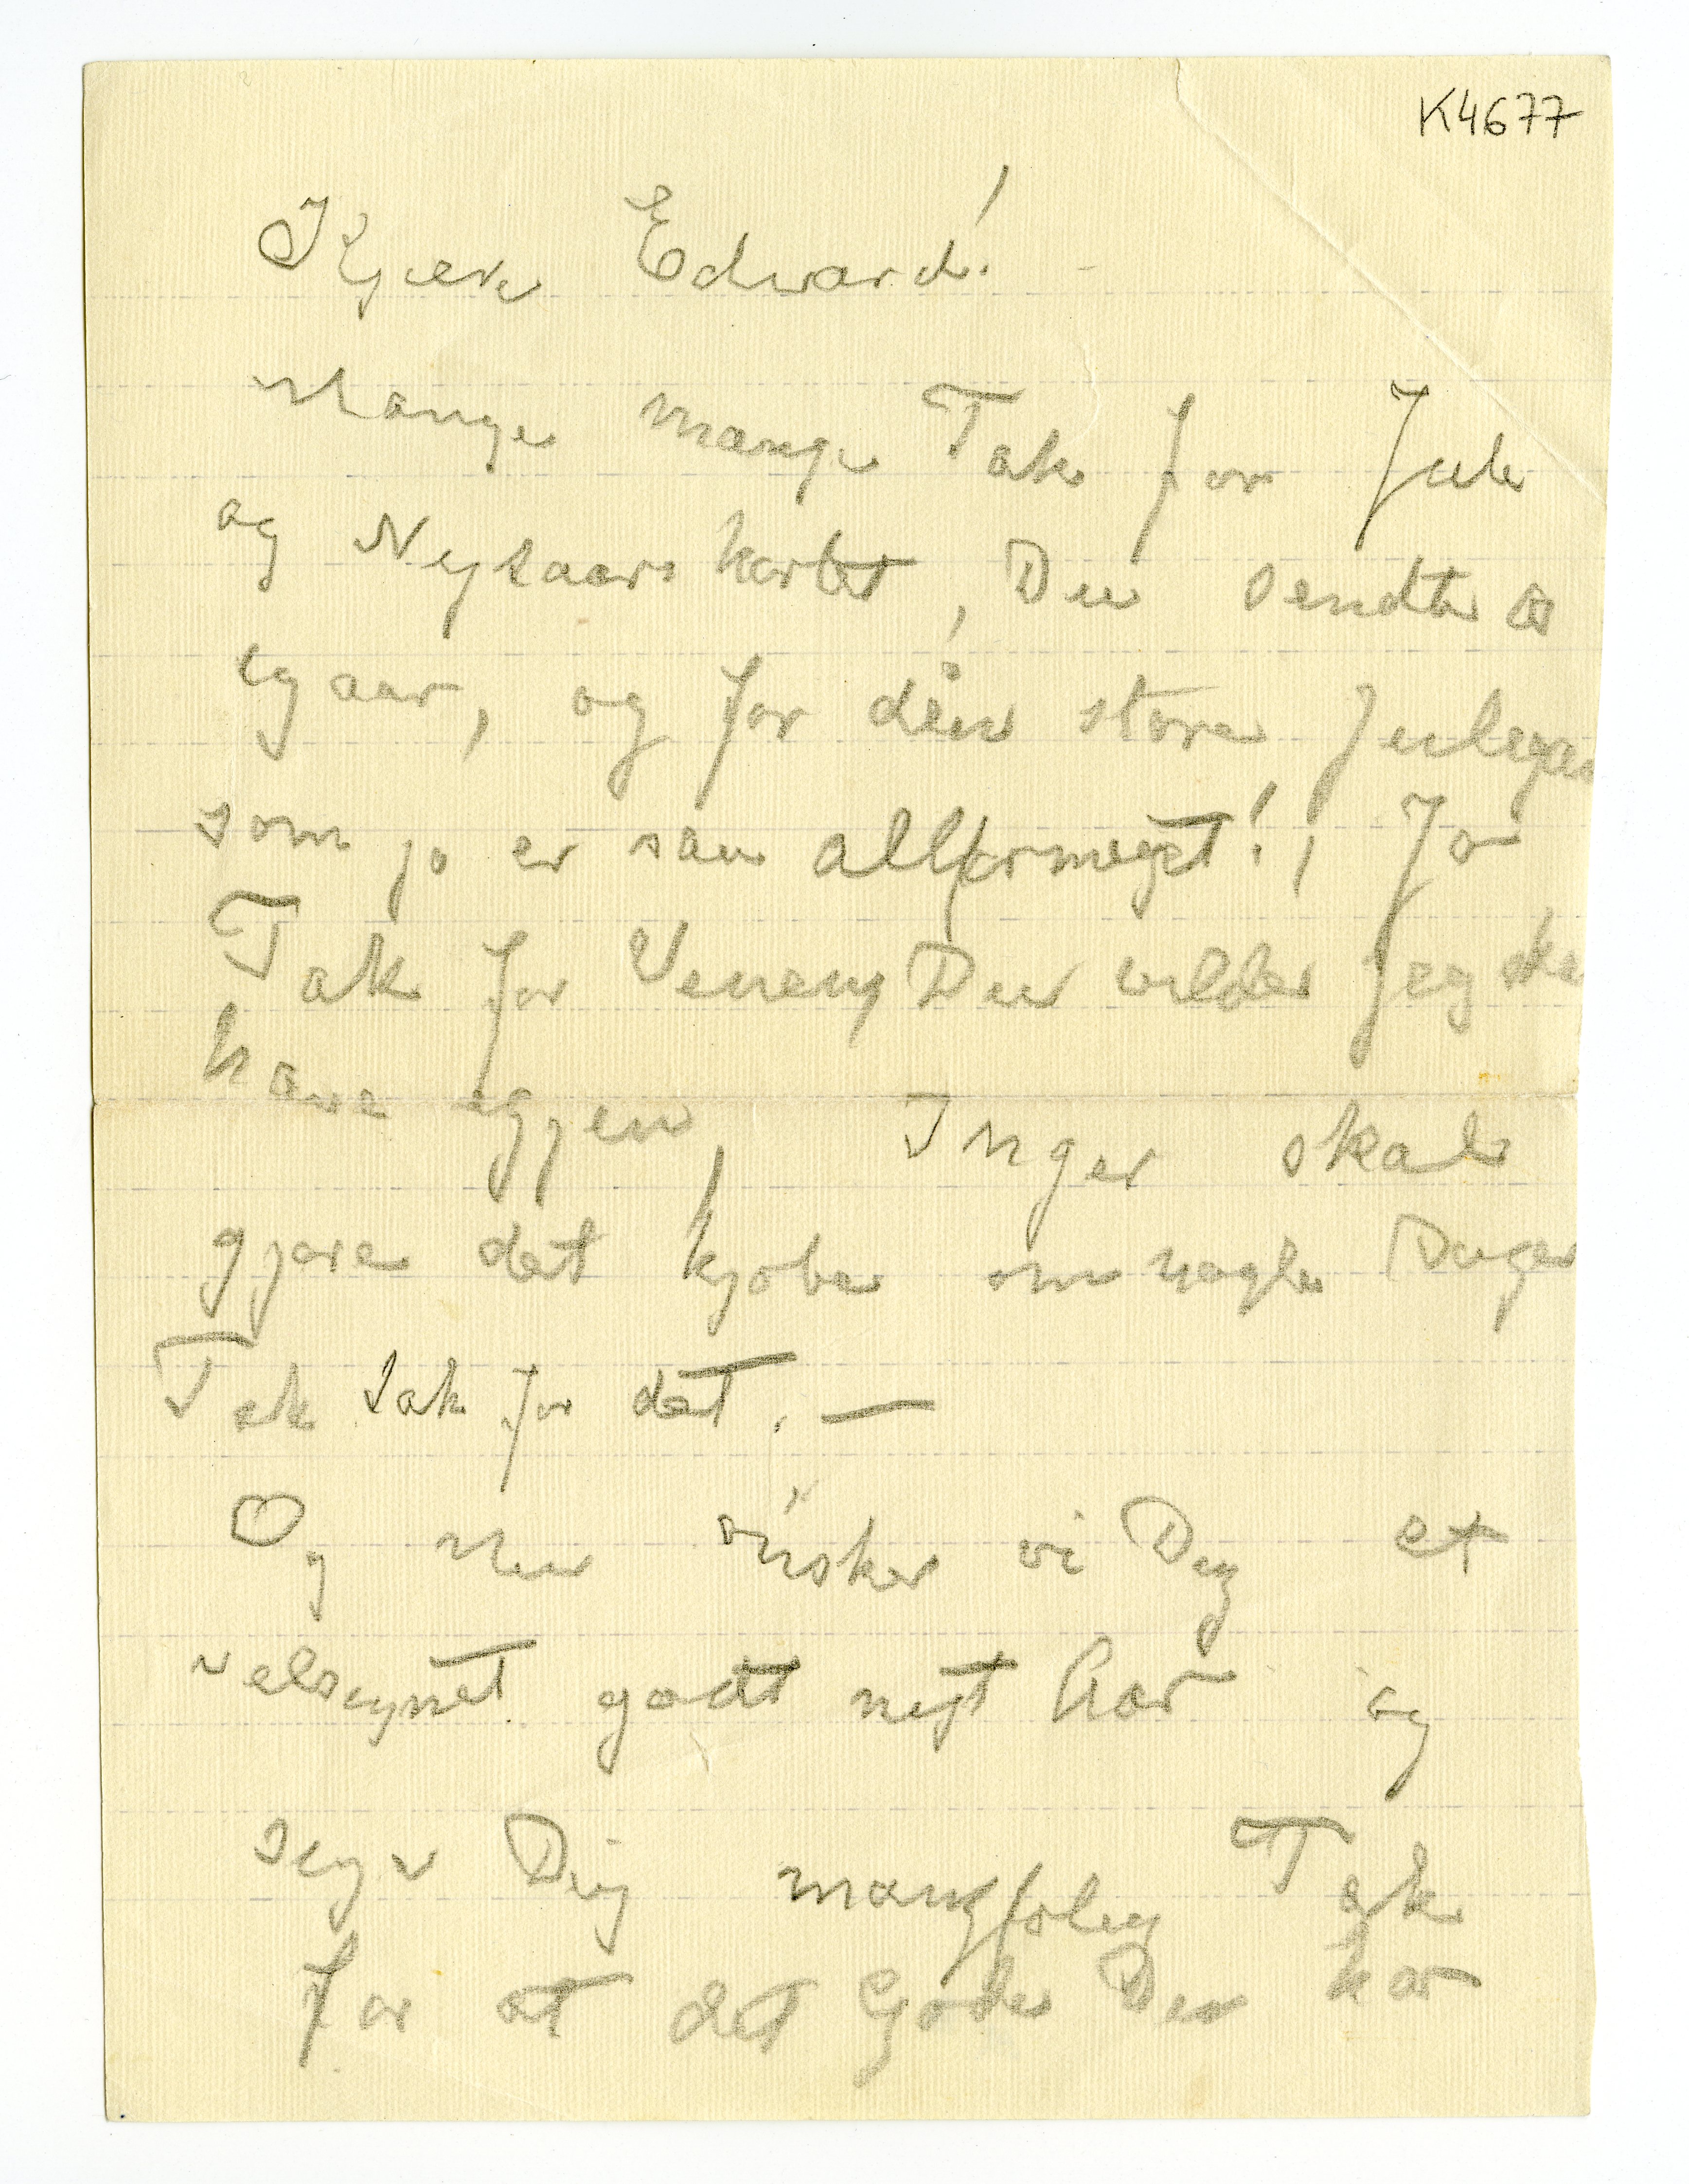 K4677
Kjære Edvard!
Mange mange Tak for Jule
og Nytaarskortet, Du sendte os
igaar, og for din store Julegave
som jo er saa altformeget!, Ja
Tak for Veneny Du vilde jeg ska
have igjen, Inger skal
gjøre det kjøbe om nogle Dage
Tak tak for det. —
Og nu ønsker vi Dig et
velsignet godt nyt Aar og
siger Dig mangfoldig Tak
for alt det Gode Du har